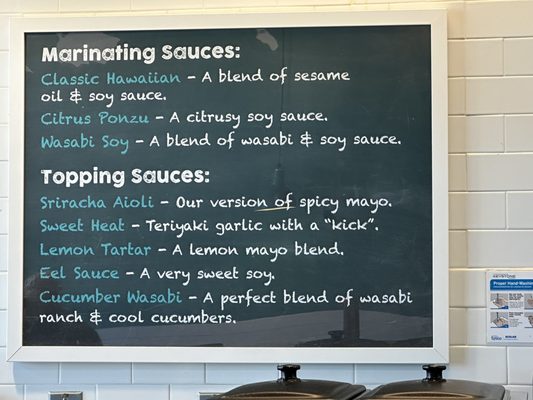 Marinating Sauces:
Classic Hawaiian - A blend of sesame
oil & soy sauce.
Citrus Ponzu - A citrusy soy sauce.
Wasabi Soy - A blend of wasabi & soy sauce.
Topping Sauces:
Sriracha Aioli - Our version of spicy mayo.
Sweet Heat - Teriyaki garlic with a "kick".
Lemon Tartar - A lemon mayo blend.
Eel Sauce - A very sweet soy.
Cucumber Wasabi - A perfect blend of wasabi
ranch & cool cucumbers.
KEYSTONE
Proper Hand-Washing